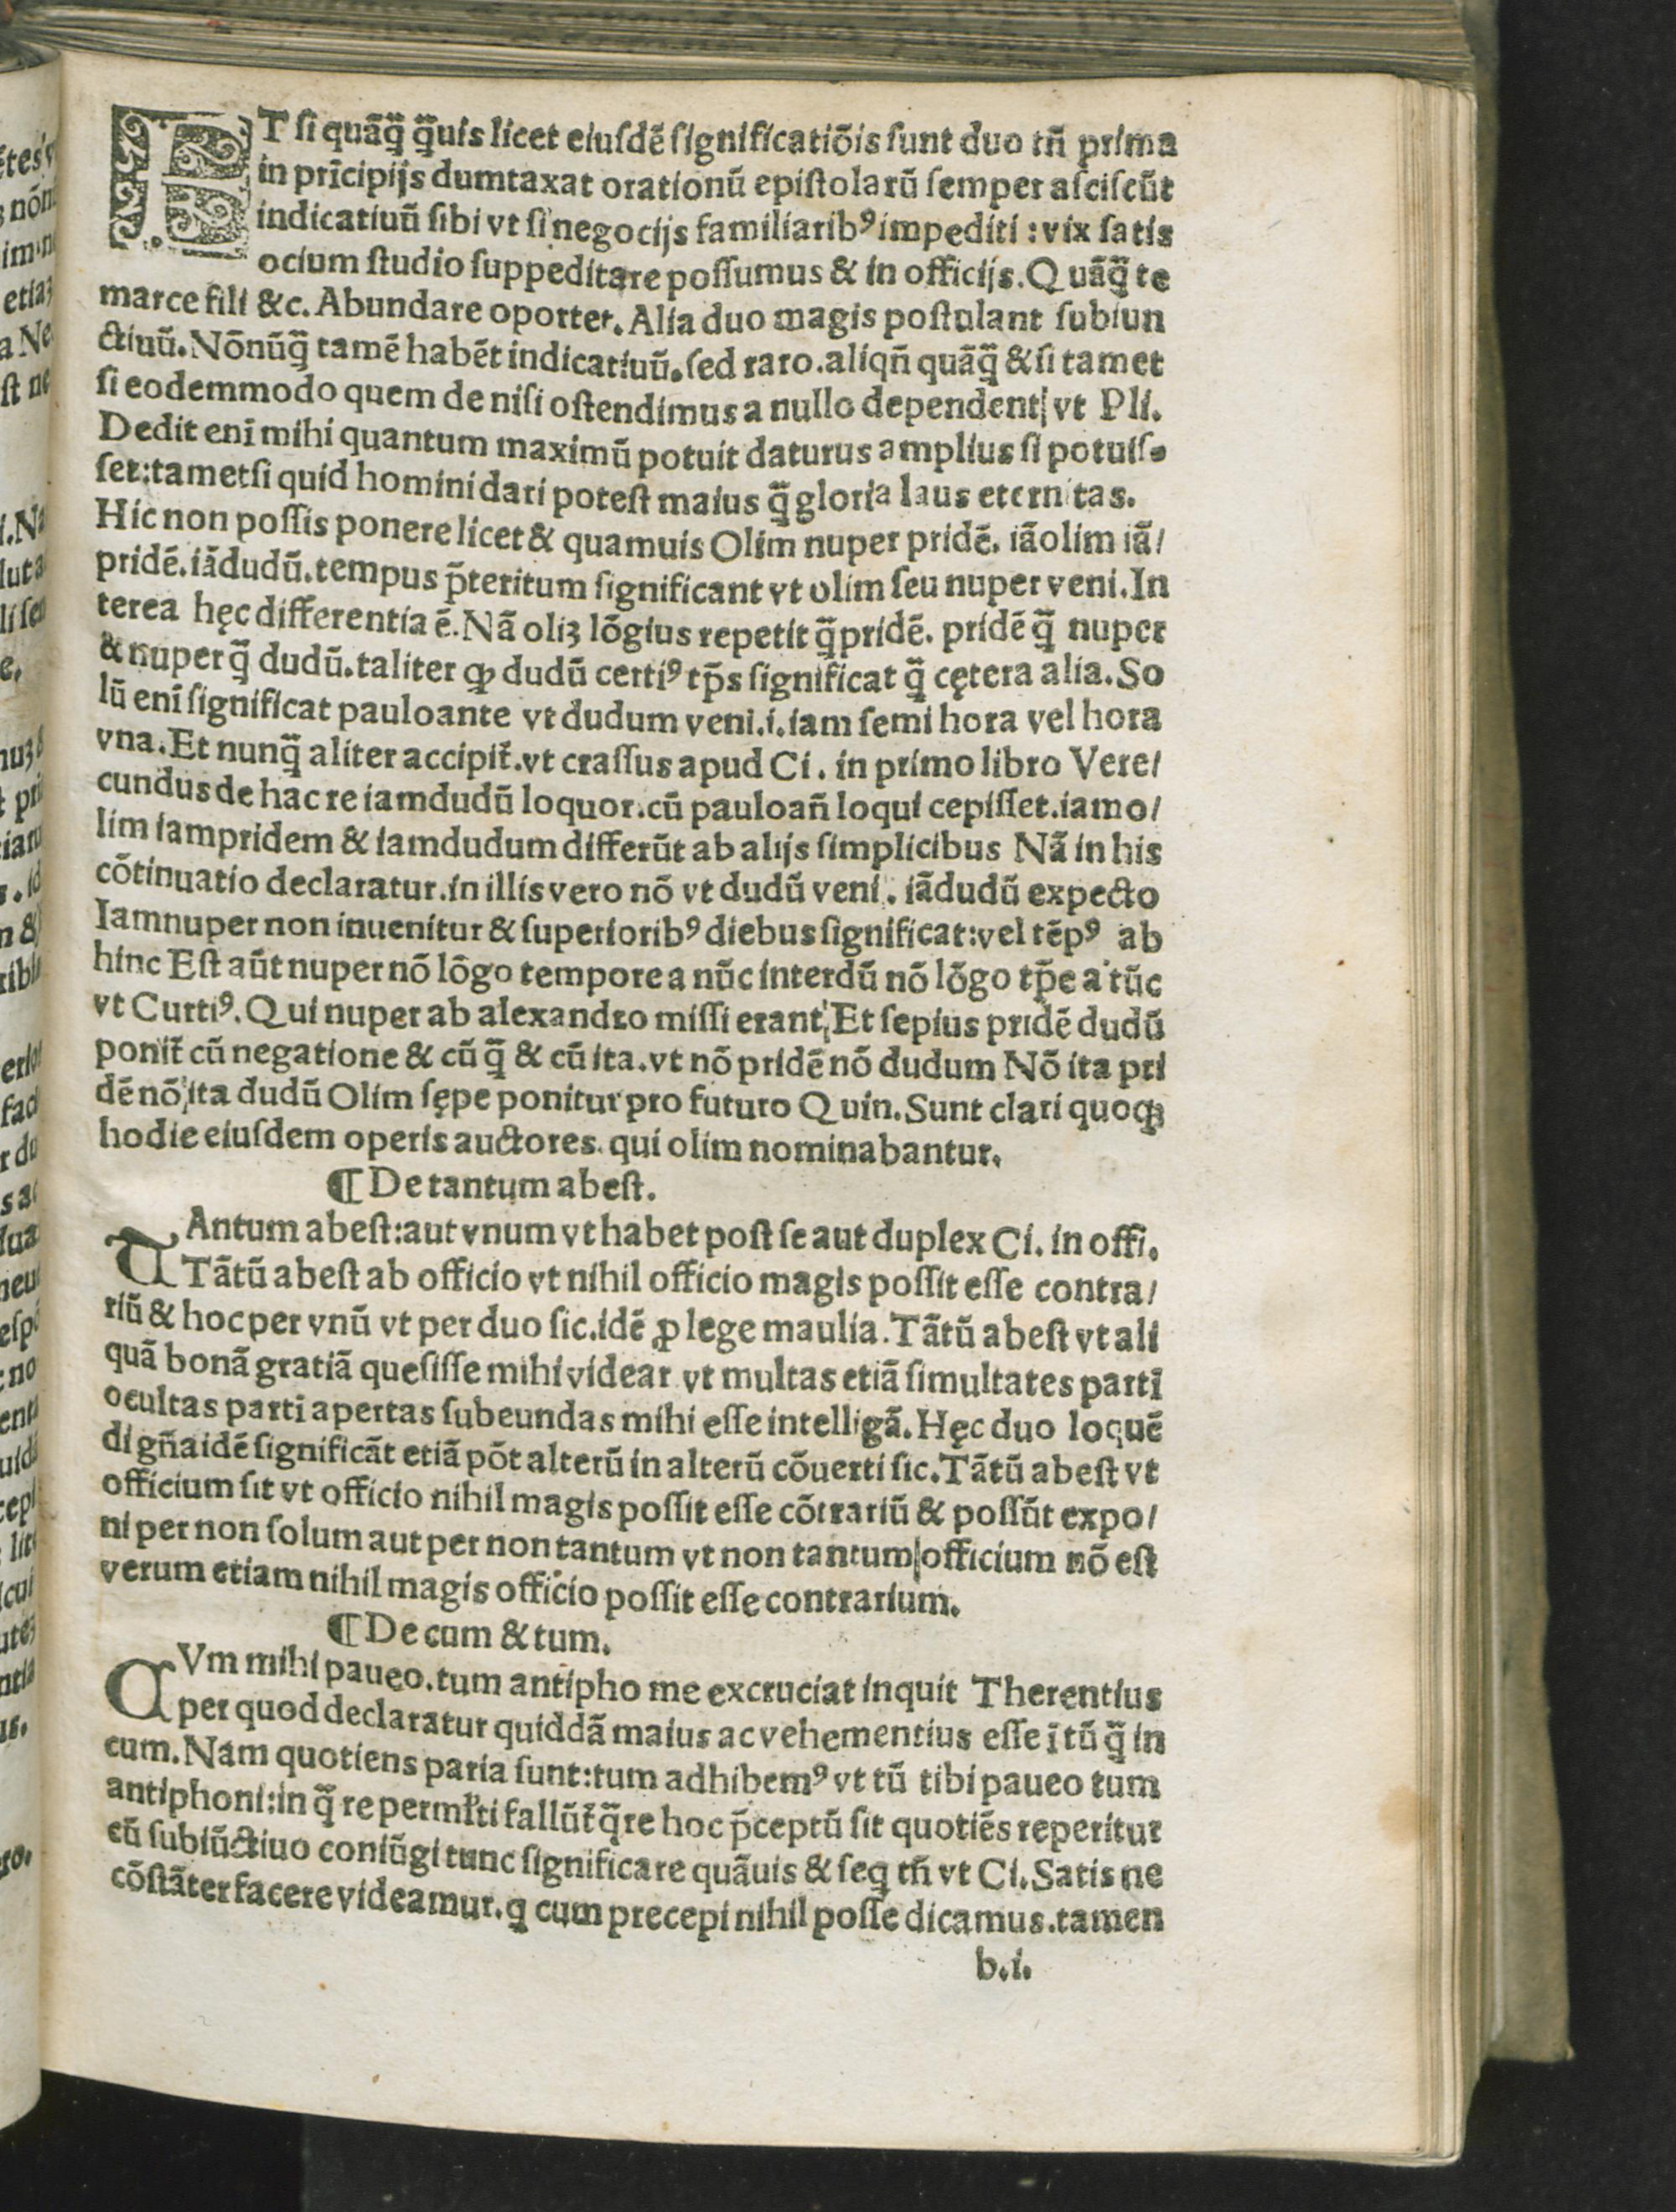 ET ſi quãq̃ q̃uis licet eiuſdẽ ſignificatiõis ſunt duo tñ prima
in prĩcipijs dumtaxat orationũ epiſtolarũ ſemper aſciſcũt
indicatiuũ ſibi vt ſi negocijs familiarib⁹ impediti : vix ſatis
ocium ſtudio ſuppeditare poſſumus & in officijs. Quãq̃ te
marce fili &c. Abundare oportet. Alia duo magis poſtulant ſubiun
ctiuũ. Nõnũq̃ tamẽ habẽt indicatiuũ. ſed raro. aliqñ quãq̃ & ſi tamet
ſi eodemmodo quem de niſi oſtendimus a nullo dependent| vt Pli.
Dedit enĩ mihi quantum maximũ potuit daturus amplius ſi potuiſ-
ſet: tametſi quid homini dari poteſt maius q̃ gloria laus eternitas.
Hic non poſſis ponere licet & quamuis Olim nuper pridẽ. iã olim iã/
pridẽ. iãdudũ. tempus p̃teritum ſignificant vt olim ſeu nuper veni. In
terea hęc differentia ẽ. Nã oliȝ lõgius repetit q̃ pridẽ. pridẽ q̃ nuper
& nuper q̃ dudũ. taliter ꝙ dudũ certi⁹ tp̃s ſignificat q̃ cętera alia. So
lũ enĩ ſignificat pauloante vt dudum veni. i. iam ſemi hora vel hora
vna. Et nunq̃ aliter accipit̃. vt craſſus apud Ci. in primo libro Vere/
cundus de hac re iamdudũ loquor. cũ pauloañ loqui cepiſſet. iamo/
lim iampridem & iamdudum differũt ab alijs ſimplicibus Nã in his
cõtinuatio declaratur. in illis vero nõ vt dudũ veni. iãdudũ expecto
Iamnuper non inuenitur & ſuperiorib⁹ diebus ſignificat: vel tẽp⁹ ab
hinc Eſt aũt nuper nõ lõgo tempore a nũc interdũ nõ lõgo tp̃e a tũc
vt Curti⁹. Qui nuper ab alexandro miſſi erant| Et ſepius pridẽ dudũ
ponit̃ cũ negatione & cũ q̃ & cũ ita. vt nõ pridẽ nõ dudum Nõ ita pri
dẽ nõ ita dudũ Olim ſępe ponitur pro futuro Quin. Sunt clari quoqȝ
hodie eiuſdem operis auctores. qui olim nominabantur.
¶ De tantum abeſt.
TAntum abeſt: aut vnum vt habet poſt ſe aut duplex Ci. in offi.
Tãtũ abeſt ab officio vt nihil officio magis poſſit eſſe contra/
riũ & hoc per vnũ vt per duo ſic. idẽ ꝓ lege maulia. Tãtũ abeſt vt ali
quã bonã gratiã queſiſſe mihi videar vt multas etiã ſimultates partĩ
ocultas parti apertas ſubeundas mihi eſſe intelligã. Hęc duo loquẽ
di gña idẽ ſignificãt etiã põt alterũ in alterũ cõuerti ſic. Tãtũ abeſt vt
officium ſit vt officio nihil magis poſſit eſſe cõtrariũ & poſſũt expo/
ni per non ſolum aut per non tantum vt non tantum| officium nõ eſt
verum etiam nihil magis officio poſſit eſſe contrarium.
¶ De cum & tum.
CVm mihi paueo. tum antipho me excruciat inquit Therentius
per quod declaratur quiddã maius ac vehementius eſſe ĩ tũ q̃ in
cum. Nam quotiens paria ſunt: tum adhibem⁹ vt tũ tibi paueo tum
antiphoni: in q̃ re permĩti fallũt̃ q̃re hoc p̃ceptũ ſit quotiẽs reperitur
cũ ſubiũctiuo coniũgi tunc ſignificare quãuis & ſeq̃ tñ vt Ci. Satis ne
cõſtãter facere videamur. q cum precepi nihil poſſe dicamus. tamen
b. i.